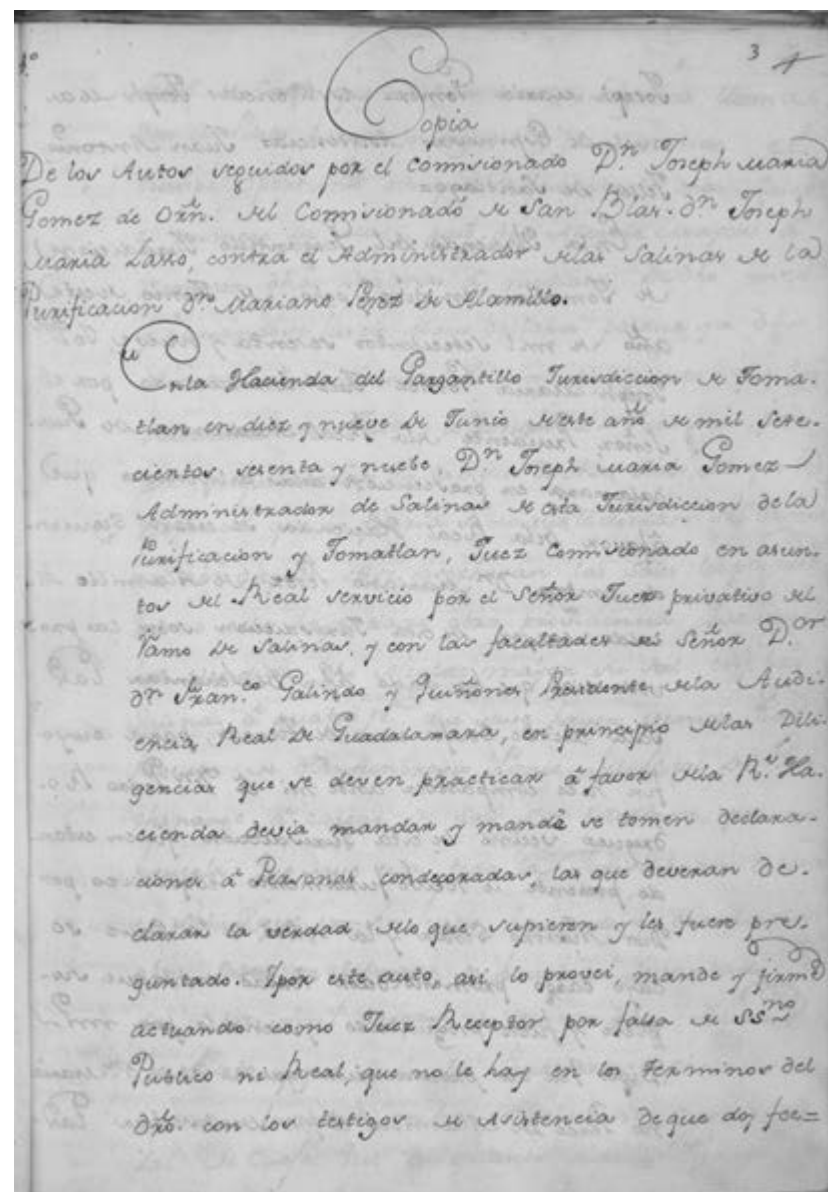 1º
3 4
Copia
De los Autos seguidos por el Comisionado Dn. Joseph Maria
Gomez de Orñ. del Comisionado de San Blas. dn Joseph
Maria Lasso, contra el Administrador delas Salinas de la
Purificacion dn. Mariano Perez de Alamillo.
En la Hacienda del Gargantillo Jurisdiccion de Toma-
tlan en diez y nueve de Junio deeste año de mil sete-
cientos sesenta y nuebe, Dn Joseph Maria Gomez
Administrador de Salinas deesta Jurisdiccion dela
Purificacion y Tomatlan, Juez Comisionado en asun-
tos del Real servicio por el Señor Juez privativo del
Ramo de Salinas, y con las facultades del Señor Dor
dn Franco Galindo y Quiñones Presidente dela Audi-
encia Real de Guadalaxara, en principio delas Dili-
gencias que se deven practicar â favor dela Rl. Ha-
cienda devia mandar y mandê se tomen declara-
ciones â Personas condecoradas, las que deveran de-
clarar la verdad delo que supieren y les fuere pre-
guntado. Ypor este auto, asi lo provei, mande y firmê
actuando como Juez Receptor por falta de SSno
Publico ni Real, que no le hay en los terminos del
dro. con los testigos de Asistencia de que doy fee=